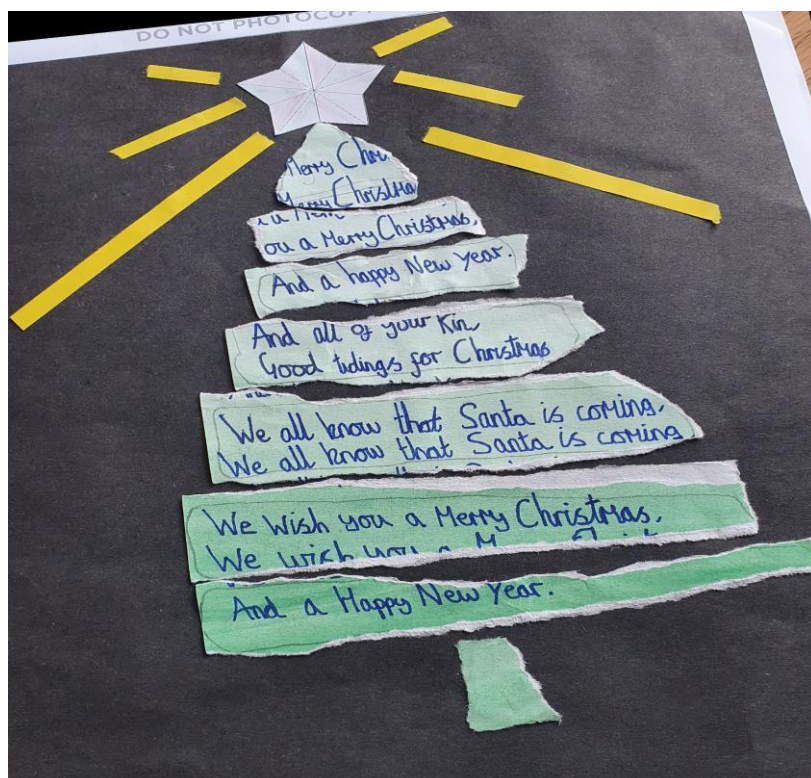 DO NOT PHOTOCOP
Merry Chri
Merry Christma
ou a Merry Christmas,
And a happy New Year.
And all of your Kin,
Good tidings for Christmas
We all know that Santa is coming,
We all know that Santa is coming
We Wish you a Merry Christmas,
We wish you a
And a Happy New Year.